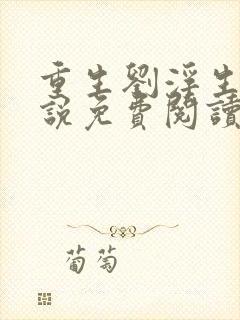 重生劉淫生
說免費閱讀
葡萄